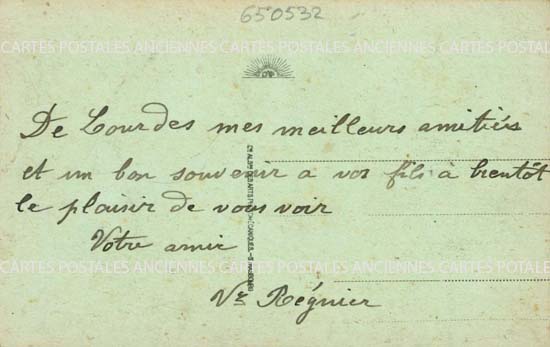 650532
CARTES POSTALES ANCIENNES CARTES POSTALES ANCIENNES CARTES POSTALES
De Lourdes mes meilleurs amitiés
et un bon souvenir a vos fils à bientôt
le plaisir de vous voir
Votre amie
CARTES POSTALES ANCIENNES CARTES POSTALES ANCIENNES CARTES POSTALES
Vve Régnier